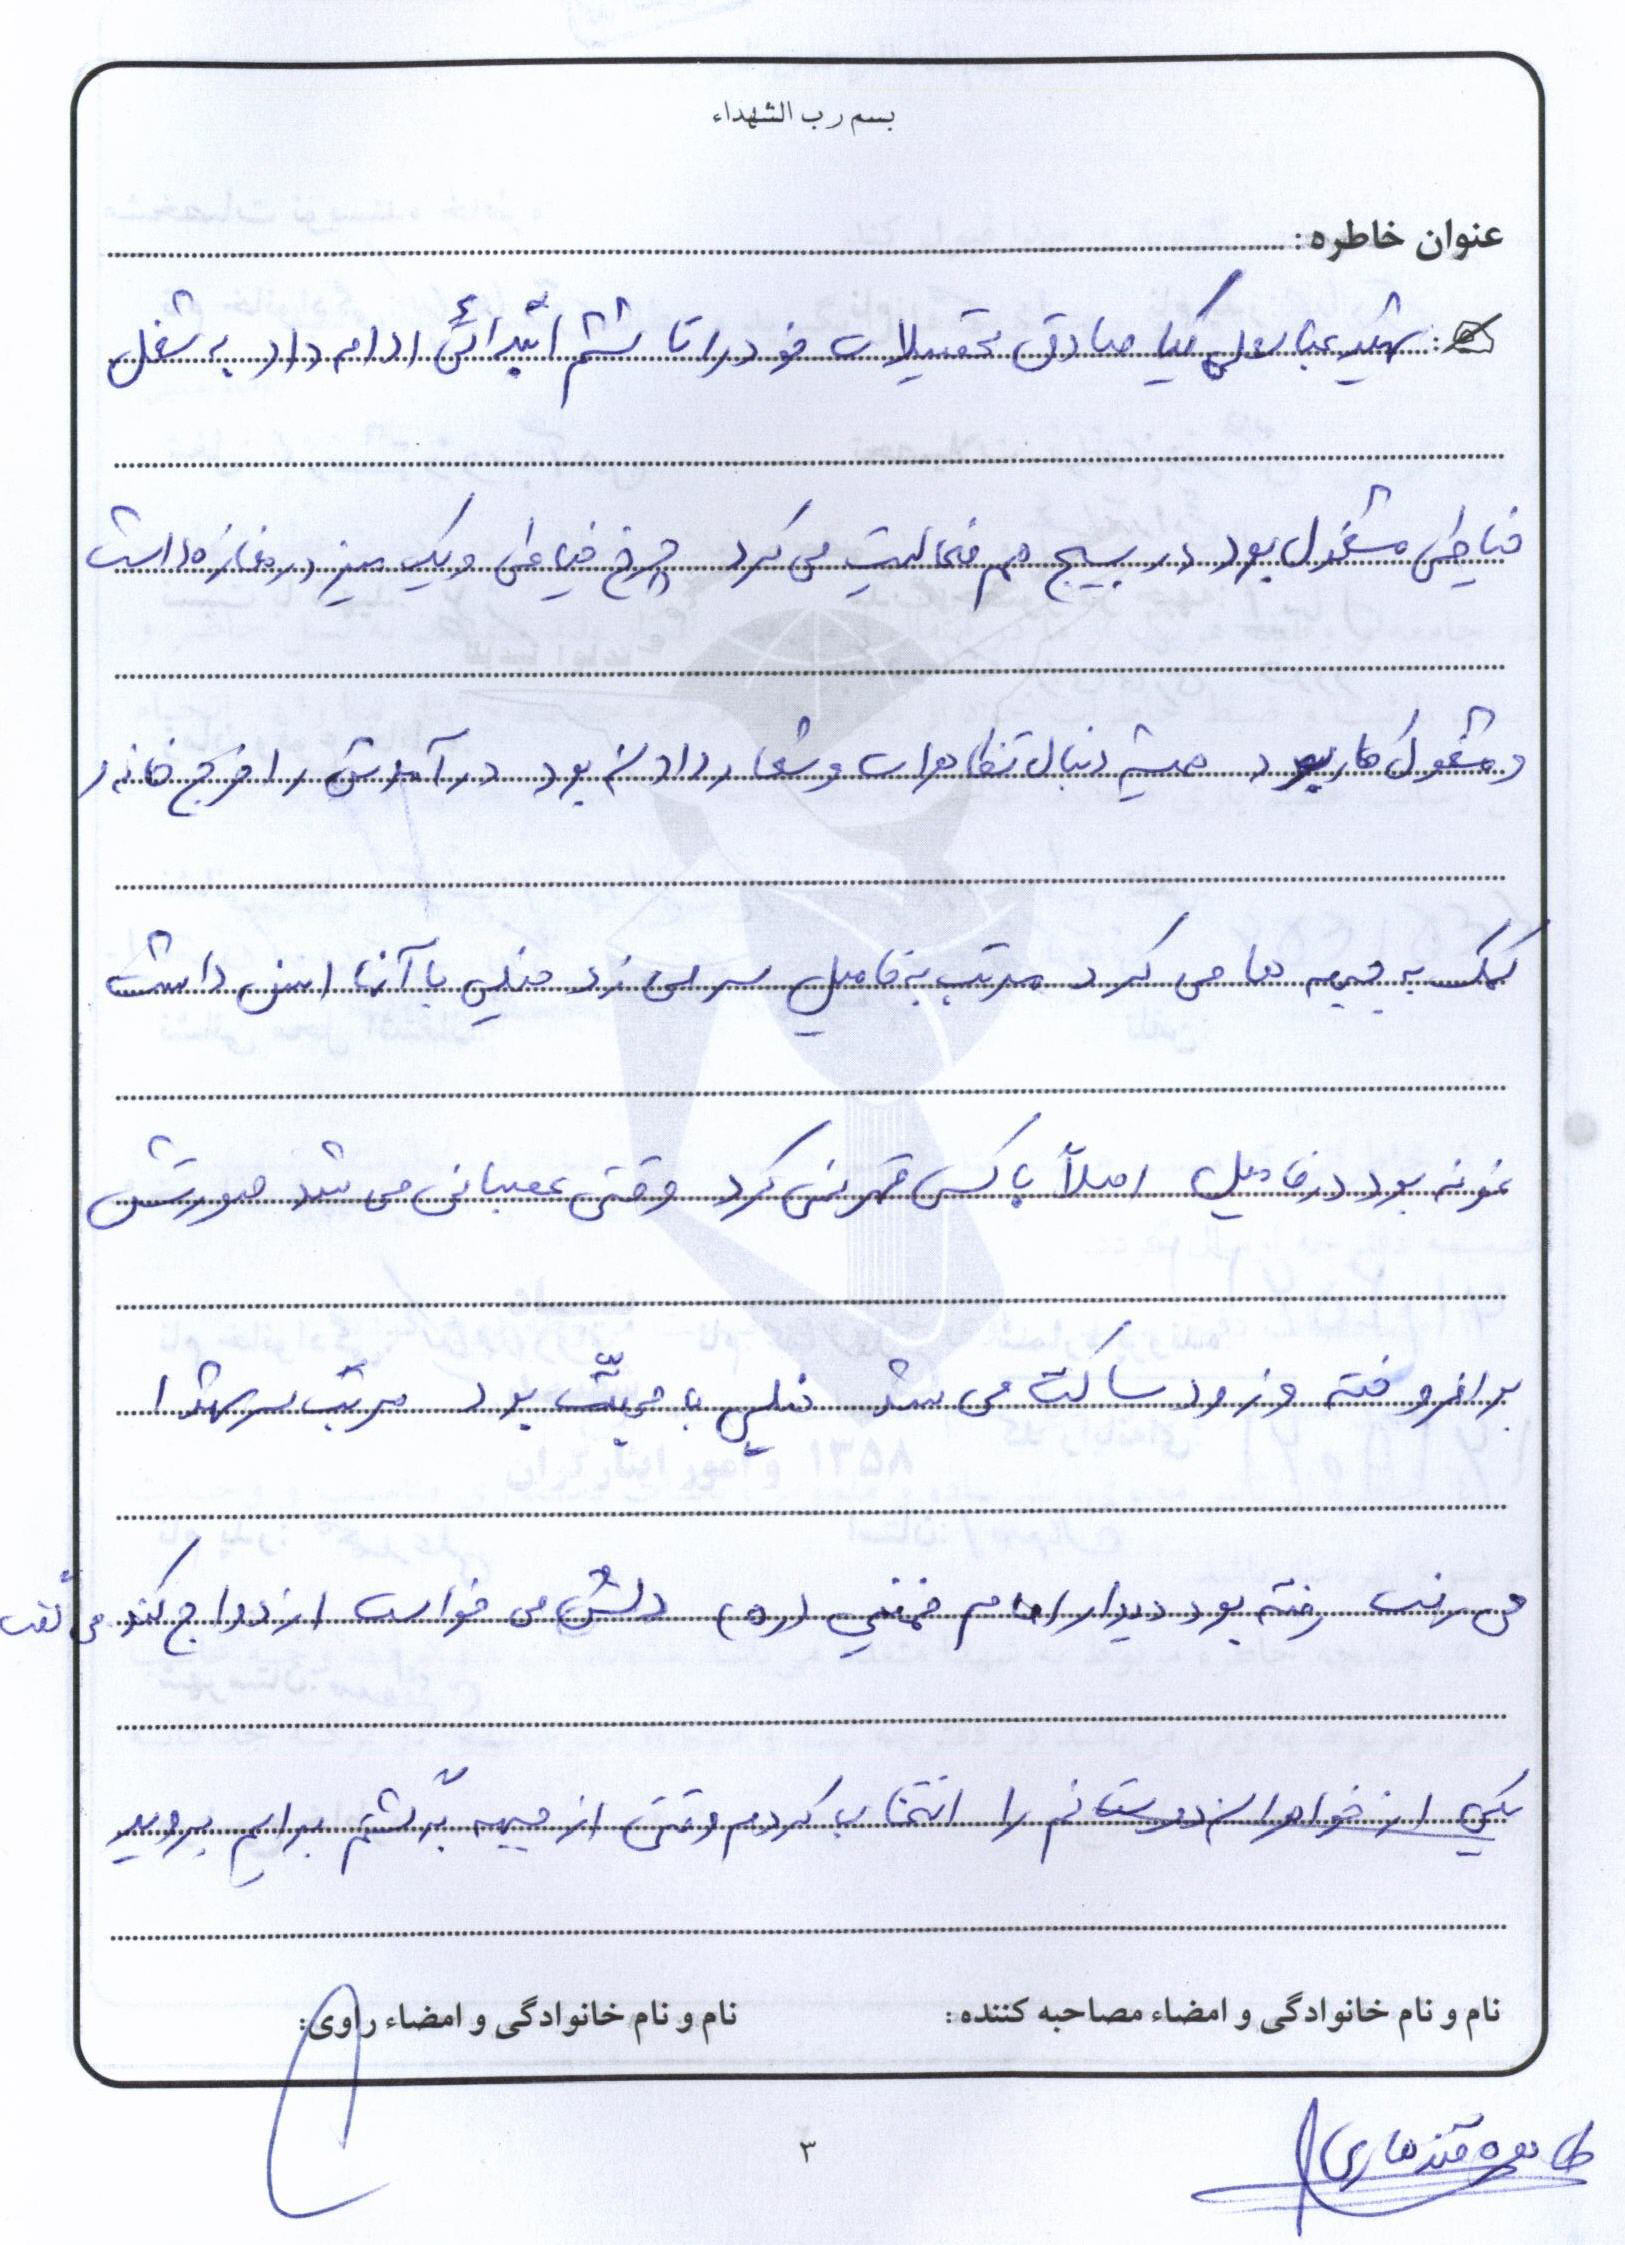 بسم رب الشهداء
عنوان خاطره:
شهید عباسعلی کیا صادقی تحصیلات خود را تا ششم ابتدائی ادامه داد به شغل
خیاطی مشغول بود در بسیج هم فعالیت می کرد چرخ خیاطی و یک میز در مغازه داشت
و مشغول کار بود همیشه دنبال تظاهرات و شعار دادن بود درآمدش را خرج خانه و
کمک به جبهه ها می کرد مرتب به فامیل سر می زد خیلی با آنها انس داشت
نمونه بود در فامیل اصلاً با کسی قهر نمی کرد وقتی عصبانی می شد صورتش
برافروخته و زود ساکت می شد خیلی با محبّت بود مرتب سر شهدا
می رفت رفته بود دیدار امام خمینی (ره) دلش می خواست ازدواج کند می گفت
یکی از خواهران دوستانم را انتخاب کردم وقتی از جبهه برگشتم برایم بروید
نام و نام خانوادگی و امضاء مصاحبه کننده: نام و نام خانوادگی و امضاء راوی:
طاهره قندهاری
۳